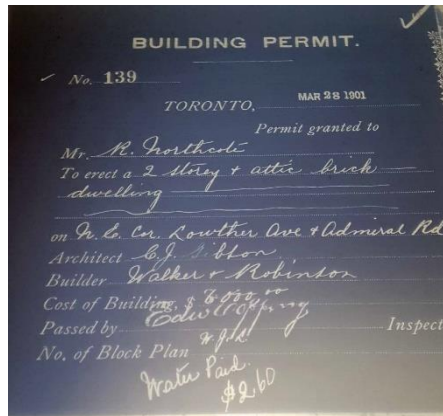 BUILDING PERMIT.
No. 139
TORONTO, MAR 28 1901
Permit granted to
Mr. R. Northcote
To erect a 2 storey + attic brick
dwelling
on N.E. Cor. Lowther Ave + Admiral Rd
Architect C.J. Gibson
Builder Walker + Robinson
Cost of Building, $ 6000.00
Passed by
Inspect
No. of Block Plan
Water Paid.
$2.60